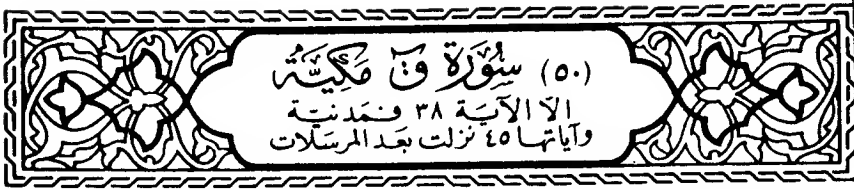 (٥٠) سُورَة قٓ مَكيَّة
الّا الآيَة ٣٨ فمَدنيَة
وآياتها ٤٥ نزلت بعَد المرسَلات